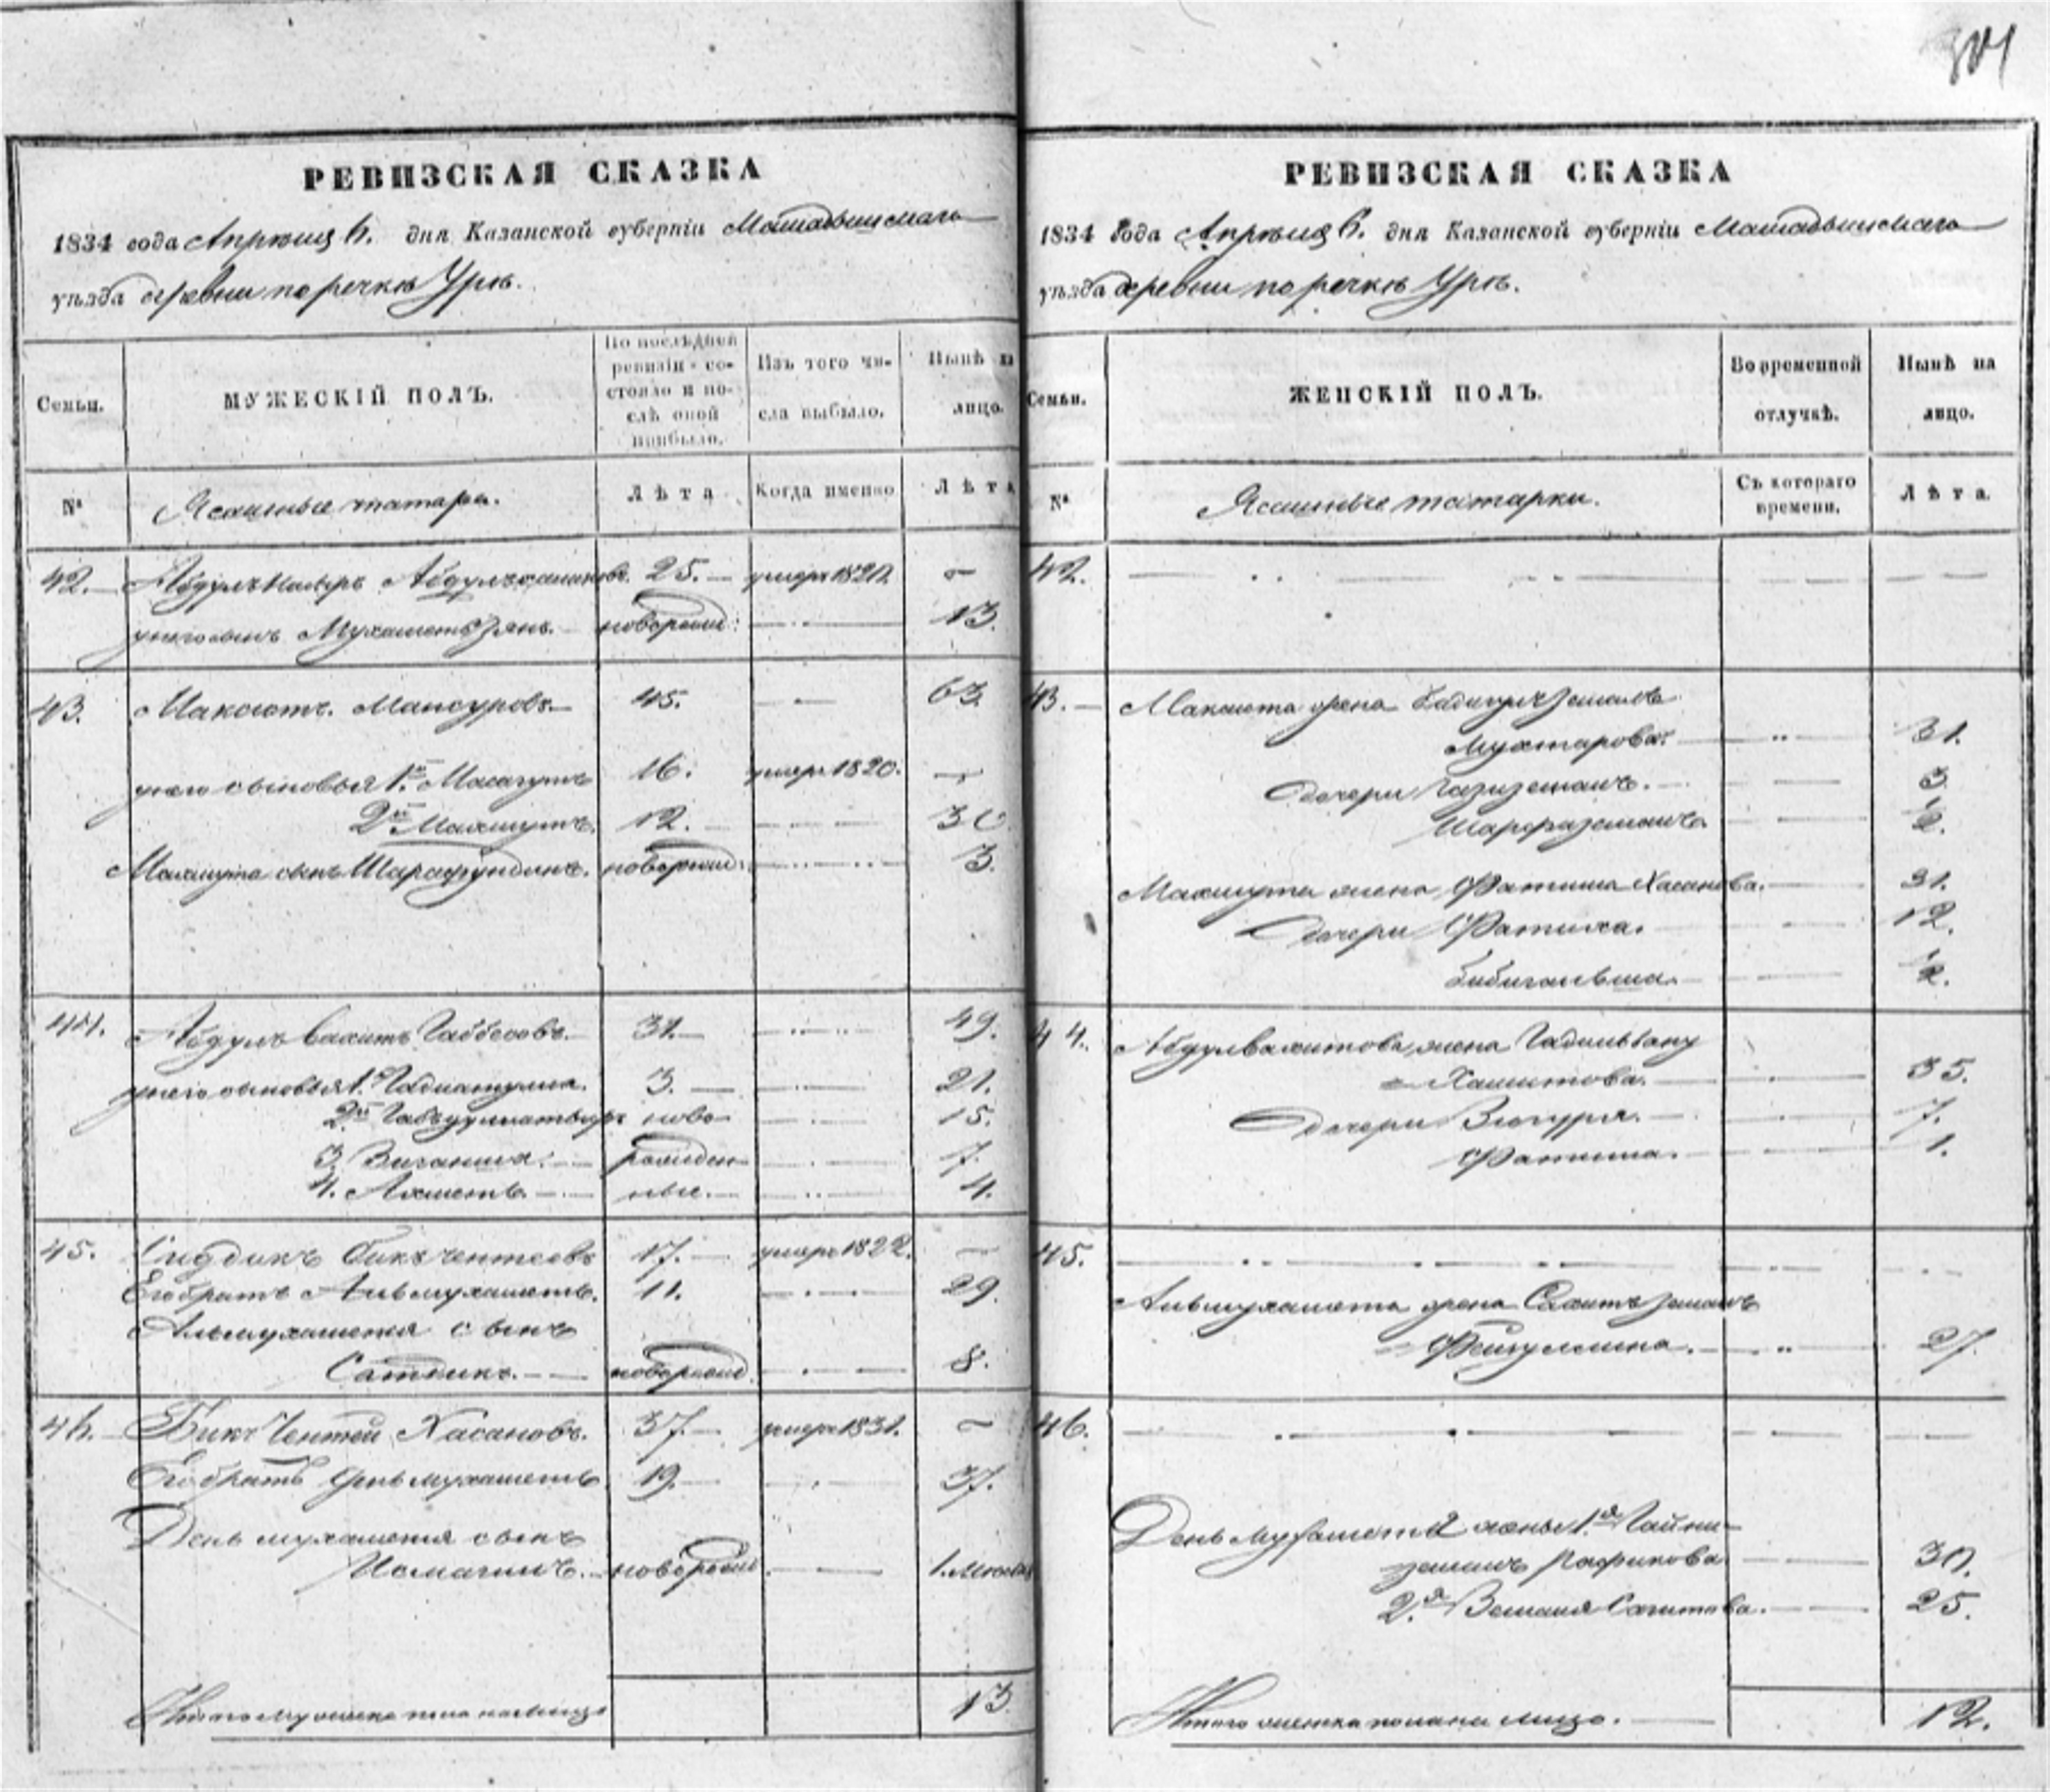 301
РЕВИЗСКАЯ СКАЗКА
1834 года Апрѣля 6. дня Казанской губерніи Мамадышскаго
уѣзда деревни по речкѣ Урѣ.
Семьи.
МУЖЕСКІЙ ПОЛЪ.
По послѣдней ревизіи со-
стояло и по-
слѣ оной
прибыло.
Изъ того чи-
сла выбыло.
Нынѣ на
лицо.
№
Ясашные татара.
Лѣта
Когда именно
Лѣта
42. Абдулъ Насыръ 25. умеръ 1820 —
у него сынъ Мухаметъ Зянъ. новорожд: — 13.
43. Максютъ Мансуровъ 45. — 63.
у него сыновья 1й Масагутъ 16. умеръ 1820. —
2й Махмутъ. 12. — 30.
Махмута сынъ Шарафутдинъ. новорожд: — 3.
44. Абдулъ Вахитъ Габбесовъ. 31. — 49.
у него сыновья 1. 3. — 21.
2й ново- — 15.
3. Зиганша. рожден- — 7.
4. Ахметъ. ные. — 4.
45. Сиддикъ Бикчентеевъ 17. умеръ 1822. —
Его братъ Альмухаметъ. 11. — 29.
Альмухаметя сынъ
Сатдикъ. новорожд. — 8.
46. Бикчентей Хасановъ. 37. умеръ 1831. —
Его братъ Денмухаметъ 19. — 37.
Денмухаметя сынъ
Исмагилъ. новорожд. — 1. месяц
Итого мужеска пола на лицо 13.
РЕВИЗСКАЯ СКАЗКА
1834 года Апрѣля 6. дня Казанской губерніи Мамадышскаго
уѣзда деревни по речкѣ Урѣ.
Семьи.
ЖЕНСКІЙ ПОЛЪ.
Во временной
отлучкѣ.
Нынѣ на
лицо.
№
Ясашные татарки.
Съ котораго
времени.
Лѣта.
42. — — —
43. Максюта жена
Мухтарова. — 31.
дочери Газизямалъ. — 3.
Шарфизямалъ — ½.
Махмута жена Фатима Хасанова. — 31.
дочери Фатиха. — 12.
— ½.
44. Абдулвахитова жена
Хамитова. — 35.
дочери Зюгуря. — 7.
Фатима. — 1.
45. — — —
Альмухамета жена
Фейзуллина. — 27.
46. — — —
Денмухаметя жены 1я Гайни-
земалъ Рафикова — 30.
2я Сагитова. — 25.
Итого женска пола на лицо. 12.